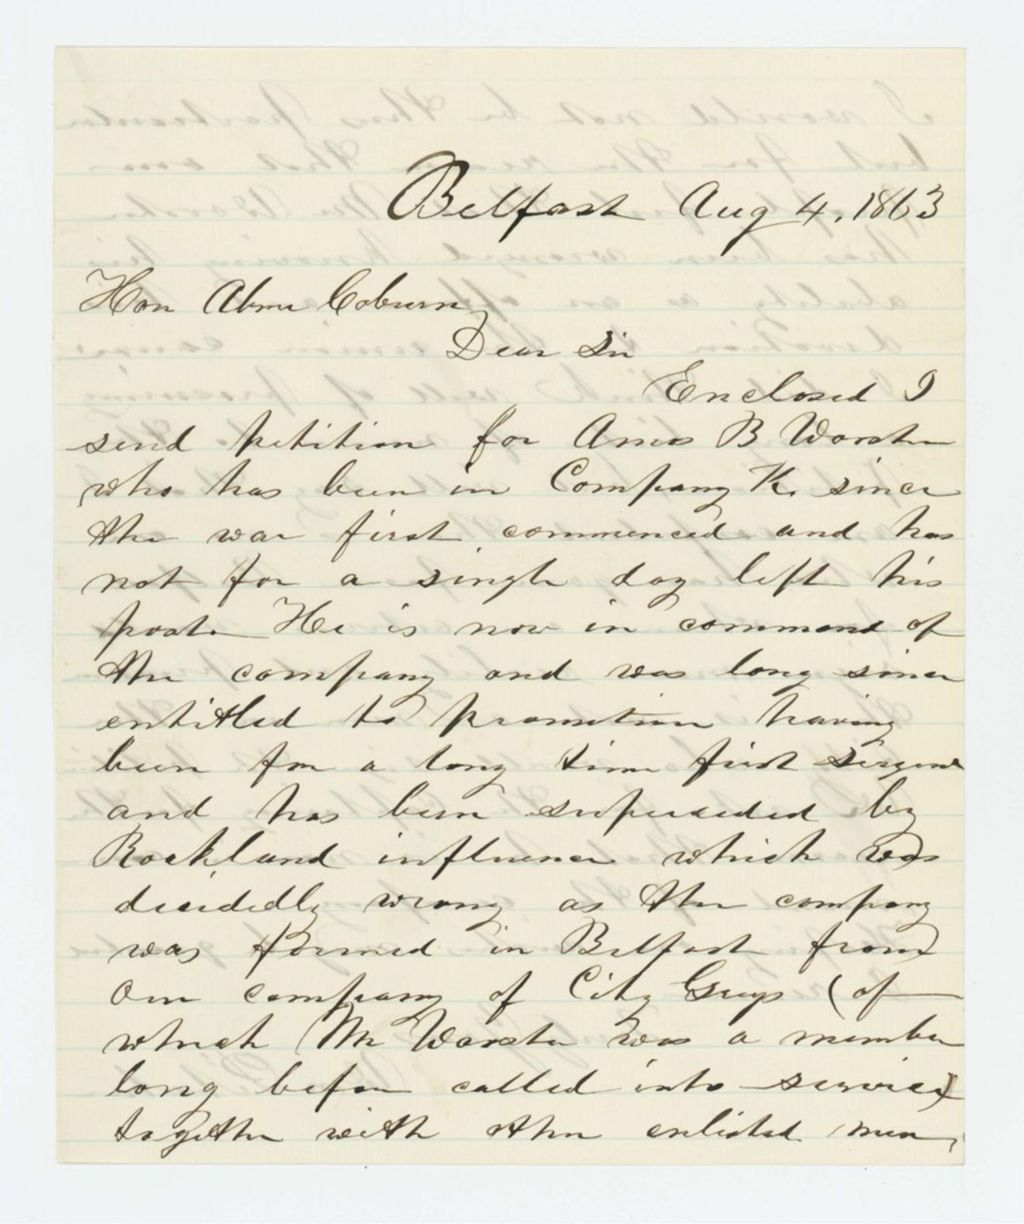 Belfast Aug 4, 1863
Hon Abner Coburn
Dear Sir
Enclosed I
send petition for Amos B Wooster
who has been in Company K. since
the war first commenced and has
not for a single day left his
post. He is now in command of
the company and was long since
entitled to promotion having
been for a long time first
and has been superseded by
Rockland influence which was
decidedly wrong as the company
was formed in Belfast from
our company of City Greys (of
which Mr Wooster was a member
long before called into service)
together with other enlisted men,